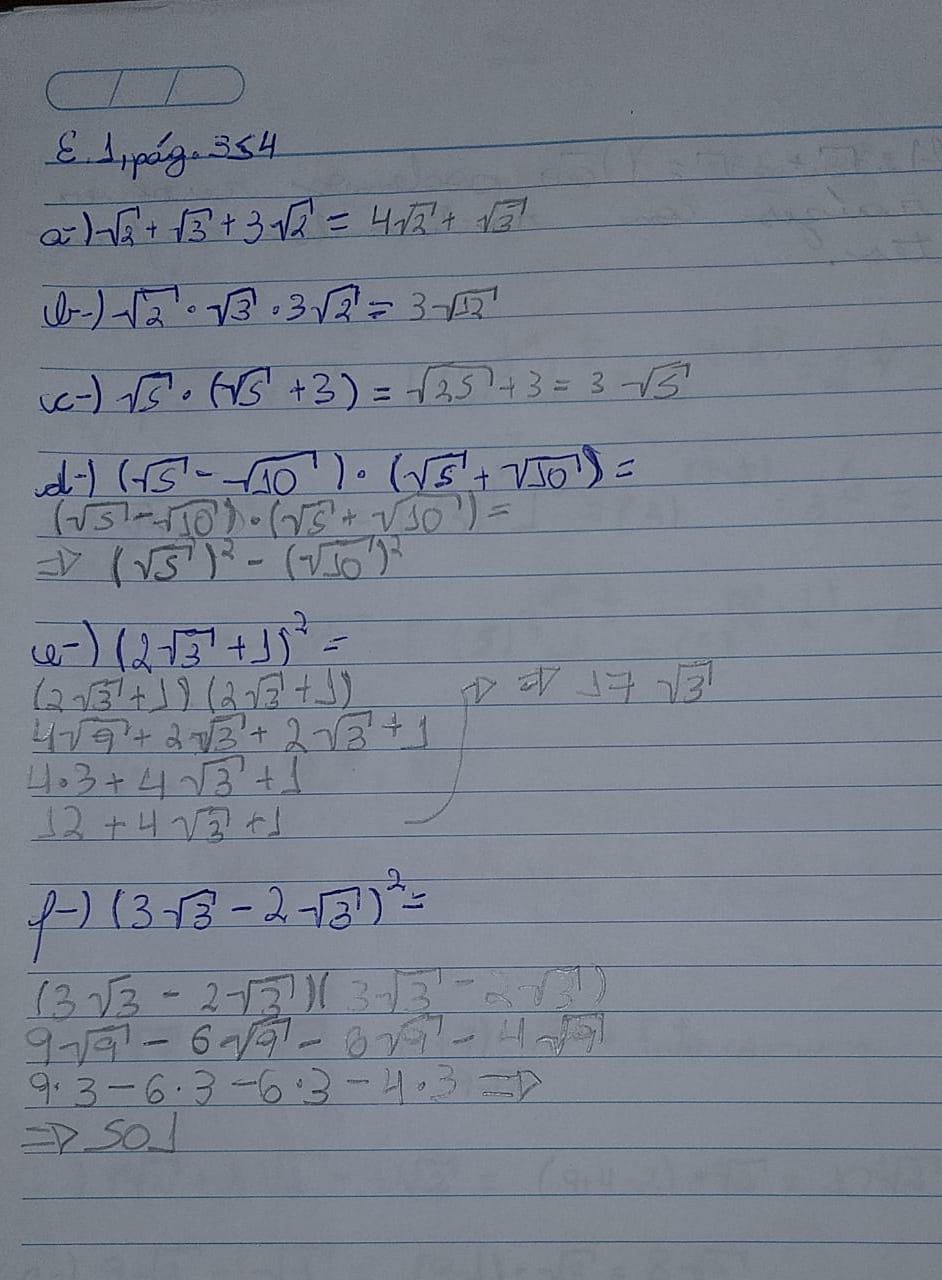 E.1, pág. 354
a-) √2 + √3 + 3√2 = 4√2 + √3
b-) √2 · √3 · 3√2 = 3√12
c-) √5 · (√5 + 3) = √25 + 3 = 3√5
d-) (√5 - √10) · (√5 + √10) =
(√5 - √10) · (√5 + √10) =
⇒ (√5)² - (√10)²
e-) (2√3 + 1)² =
(2√3 + 1) (2√3 + 1)
4√9 + 2√3 + 2√3 + 1
4·3 + 4√3 + 1
12 + 4√3 + 1 ⇒ ⇒ 17√3
f-) (3√3 - 2√3)² =
(3√3 - 2√3)(3√3 - 2√3)
9√9 - 6√9 - 6√9 - 4√9
9·3 - 6·3 - 6·3 - 4·3 ⇒
⇒ 501